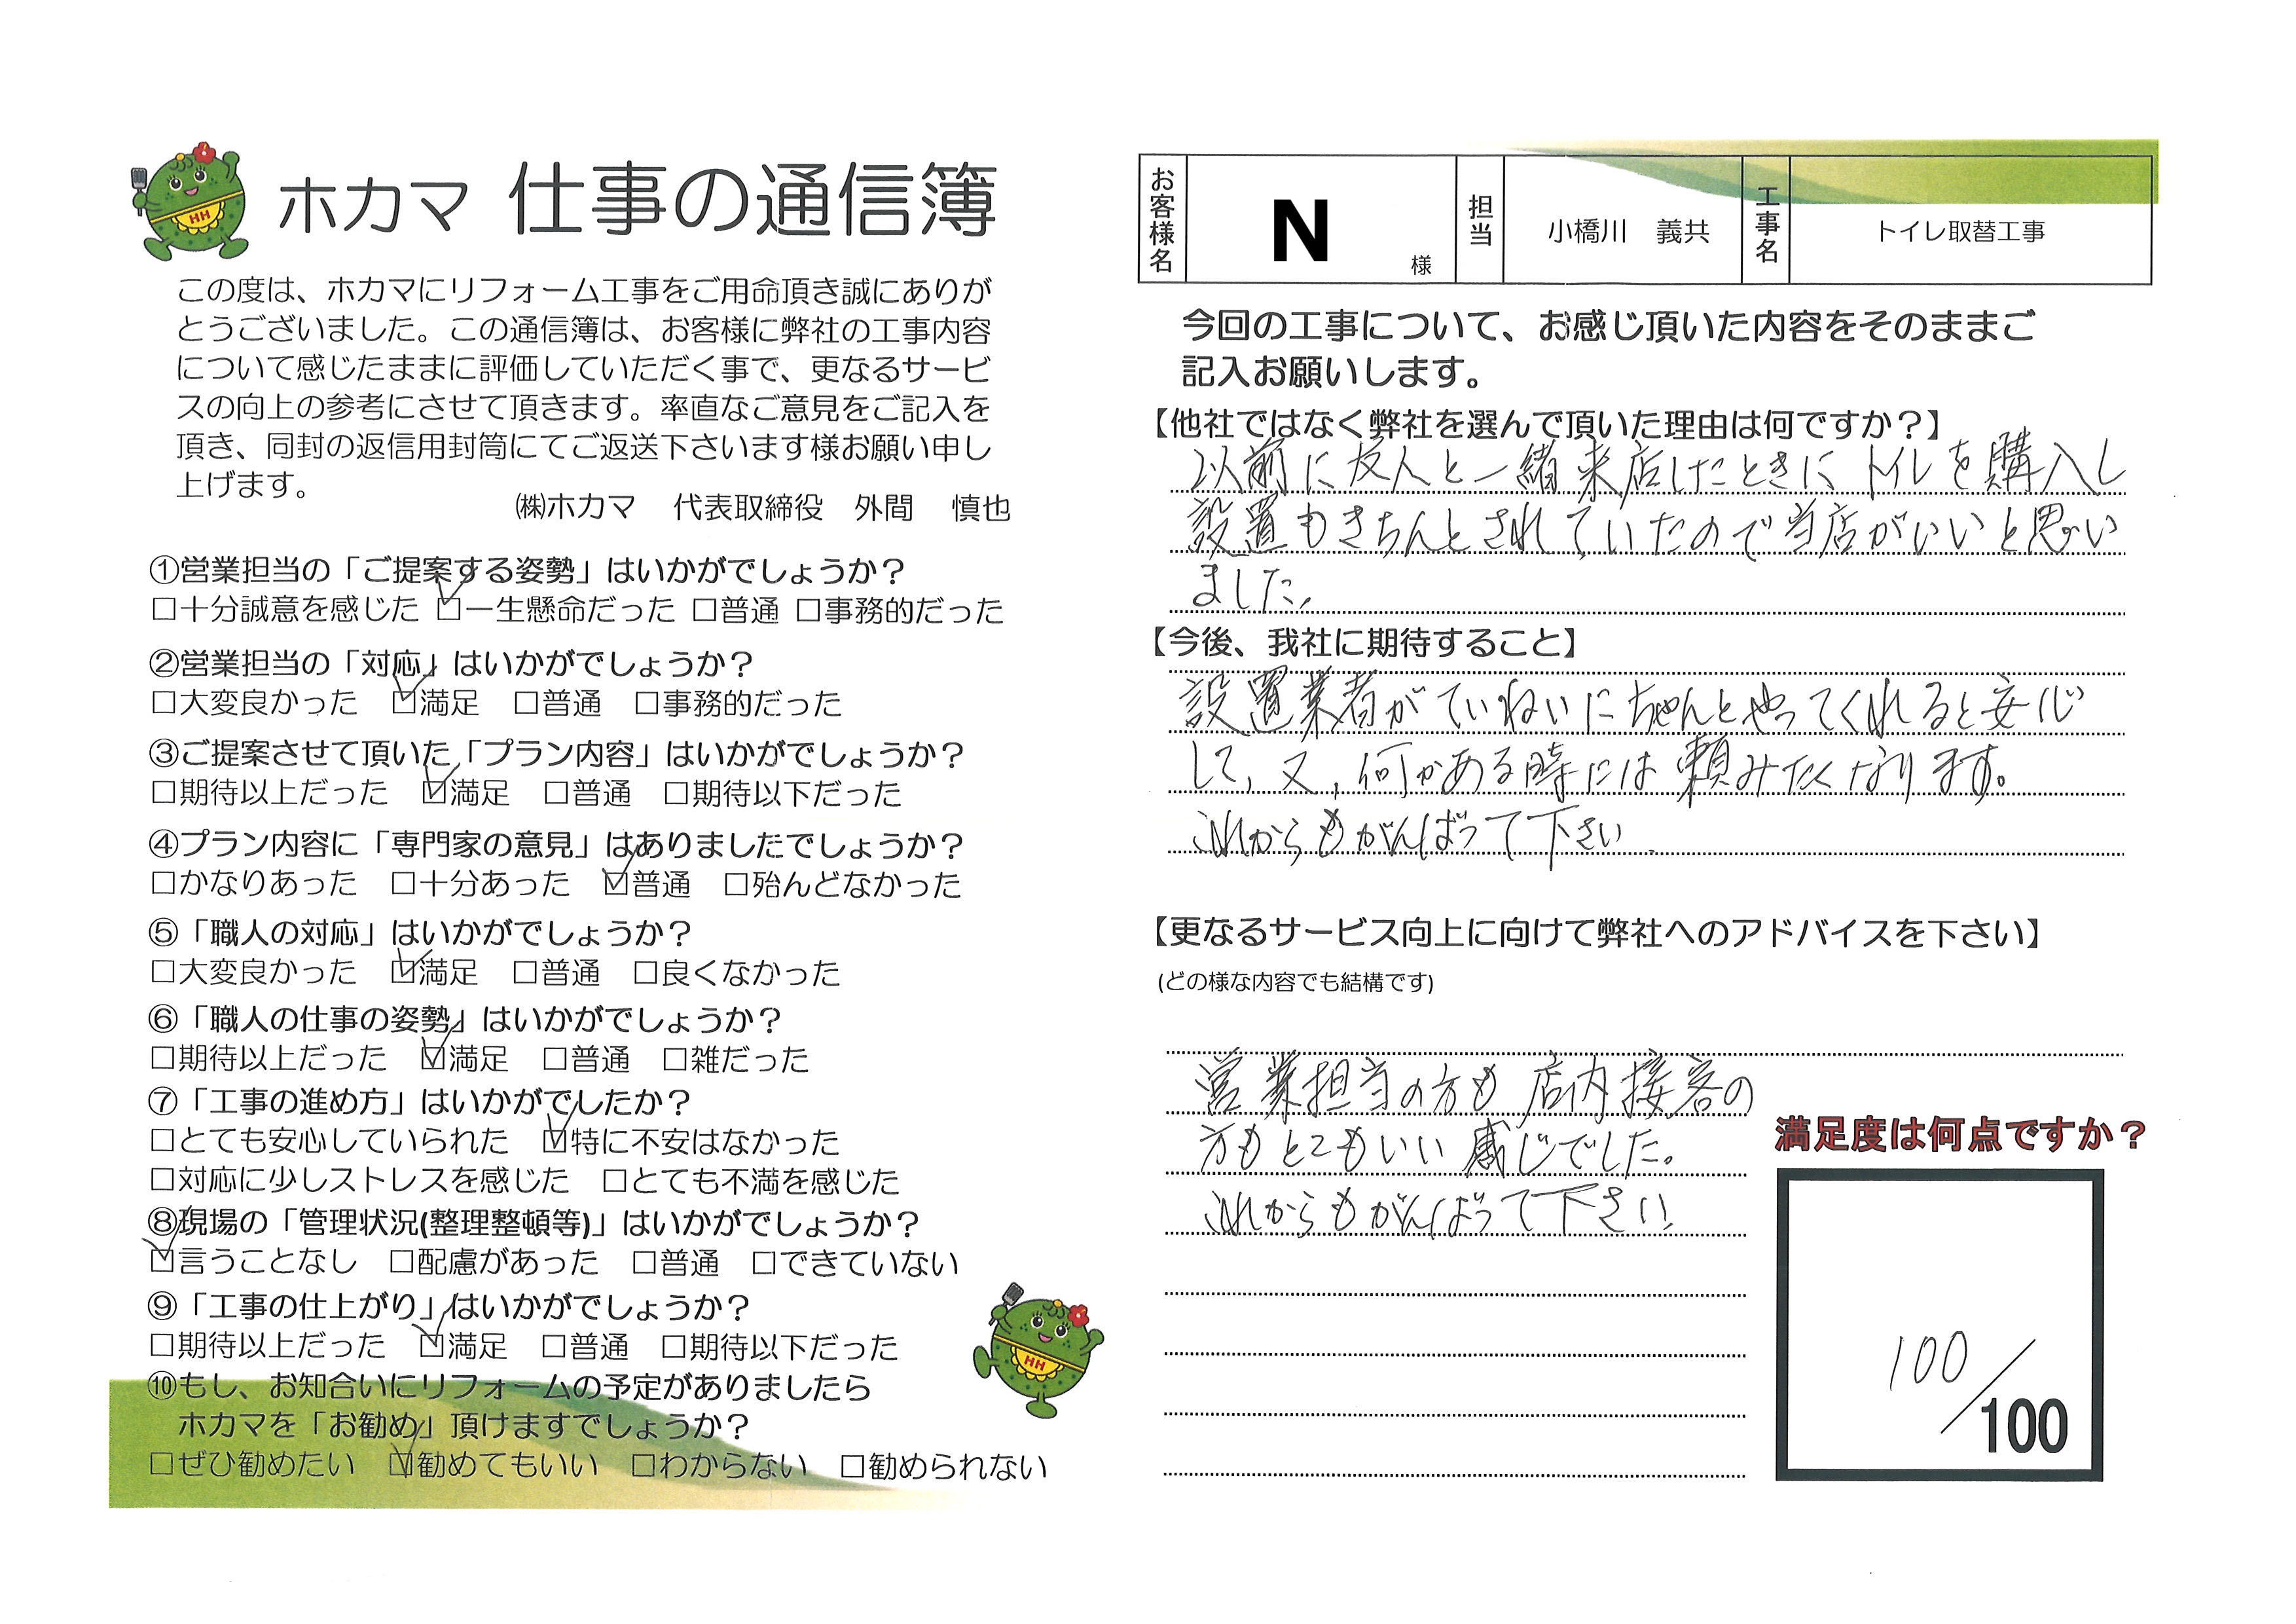 ホカマ 仕事の通信簿
この度は、ホカマにリフォーム工事をご用命頂き誠にありが
とうございました。この通信簿は、お客様に弊社の工事内容
について感じたままに評価していただく事で、更なるサービ
スの向上の参考にさせて頂きます。率直なご意見をご記入を
頂き、同封の返信用封筒にてご返送下さいます様お願い申し
上げます。
㈱ホカマ 代表取締役 外間 慎也
①営業担当の「ご提案する姿勢」はいかがでしょうか？
□十分誠意を感じた ☑一生懸命だった □普通 □事務的だった
②営業担当の「対応」はいかがでしょうか？
□大変良かった ☑満足 □普通 □事務的だった
③ご提案させて頂いた「プラン内容」はいかがでしょうか？
□期待以上だった ☑満足 □普通 □期待以下だった
④プラン内容に「専門家の意見」はありましたでしょうか？
□かなりあった □十分あった ☑普通 □殆んどなかった
⑤「職人の対応」はいかがでしょうか？
□大変良かった ☑満足 □普通 □良くなかった
⑥「職人の仕事の姿勢」はいかがでしょうか？
□期待以上だった ☑満足 □普通 □雑だった
⑦「工事の進め方」はいかがでしたか？
□とても安心していられた ☑特に不安はなかった
□対応に少しストレスを感じた □とても不満を感じた
⑧現場の「管理状況(整理整頓等)」はいかがでしょうか？
☑言うことなし □配慮があった □普通 □できていない
⑨「工事の仕上がり」はいかがでしょうか？
□期待以上だった ☑満足 □普通 □期待以下だった
⑩もし、お知合いにリフォームの予定がありましたら
ホカマを「お勧め」頂けますでしょうか？
□ぜひ勧めたい ☑勧めてもいい □わからない □勧められない
HH
HH
お客様名 N 様 担当 小橋川 義共 工事名 トイレ取替工事
今回の工事について、お感じ頂いた内容をそのままご
記入お願いします。
【他社ではなく弊社を選んで頂いた理由は何ですか？】
以前に友人と一緒来店したときにトイレを購入し
設置もきちんとされていたので当店がいいと思い
ました。
【今後、我社に期待すること】
設置業者がていねいにちゃんとやってくれると安心
して、又、何かある時には頼みたくなります。
これからもがんばって下さい.
【更なるサービス向上に向けて弊社へのアドバイスを下さい】
(どの様な内容でも結構です)
営業担当の方も店内接客の
方もとてもいい感じでした。
これからもがんばって下さい!
満足度は何点ですか？
100/100